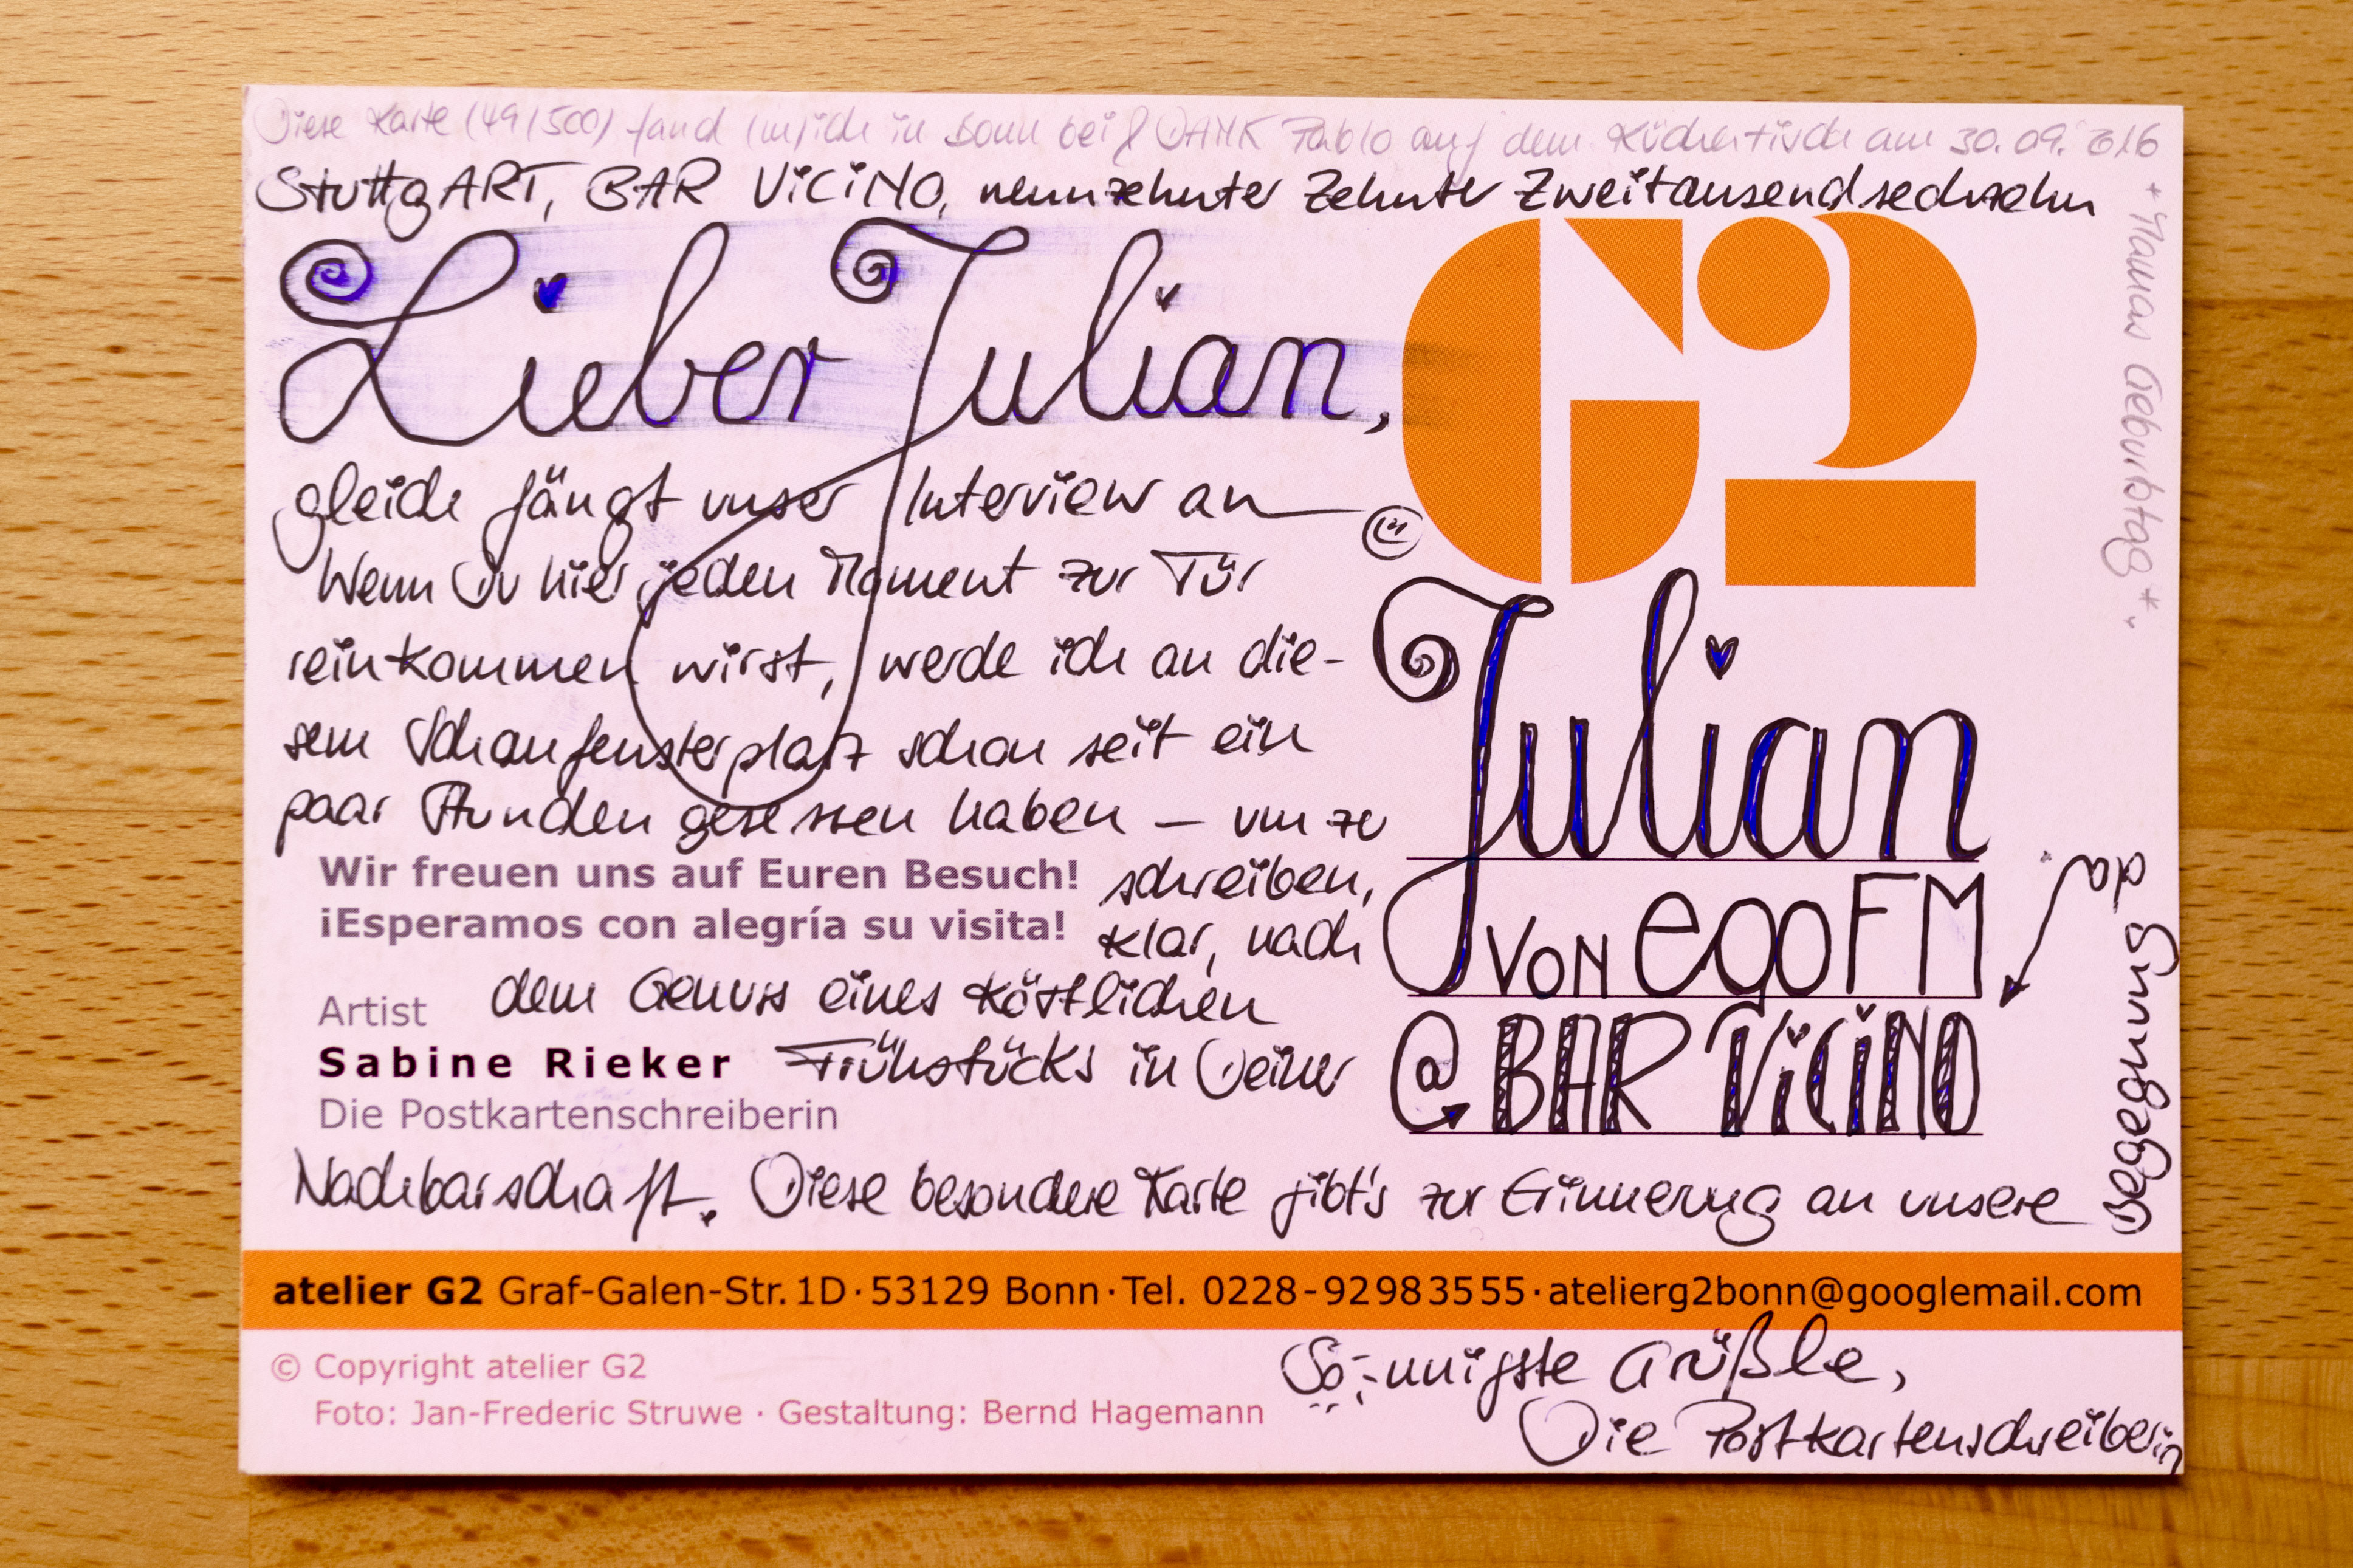 Diese Karte (49/500) fand (m)ich in Bonn bei & DANK Pablo auf dem Küchentisch am 30.09.2016
*Mamas Geburtstag*.
StuttgART, BAR ViCiNO, neunzehnter Zehnter Zweitausendsechzehn
Lieber Julian,
gleich fängt unser Interview an
Wenn Du hier jeden Moment zur Tür
reinkommen wirst, werde ich an die-
sem Schaufensterplatz schon seit ein
paar Stunden gesessen haben – um zu
schreiben,
klar, nach
dem Genuss eines köstlichen
Frühstücks in Deiner
Nachbarschaft. Diese besondere Karte gibt's zur Erinnerung an unsere
Begegnung
G2
Julian
VON egoFM
@ BAR ViCiNO
Wir freuen uns auf Euren Besuch!
¡Esperamos con alegría su visita!
Artist
Sabine Rieker
Die Postkartenschreiberin
atelier G2 Graf-Galen-Str. 1D · 53129 Bonn · Tel. 0228-92983555 · atelierg2bonn@googlemail.com
© Copyright atelier G2
Foto: Jan-Frederic Struwe · Gestaltung: Bernd Hagemann
So-nnigste Grüßle,
Die Postkartenschreiberin